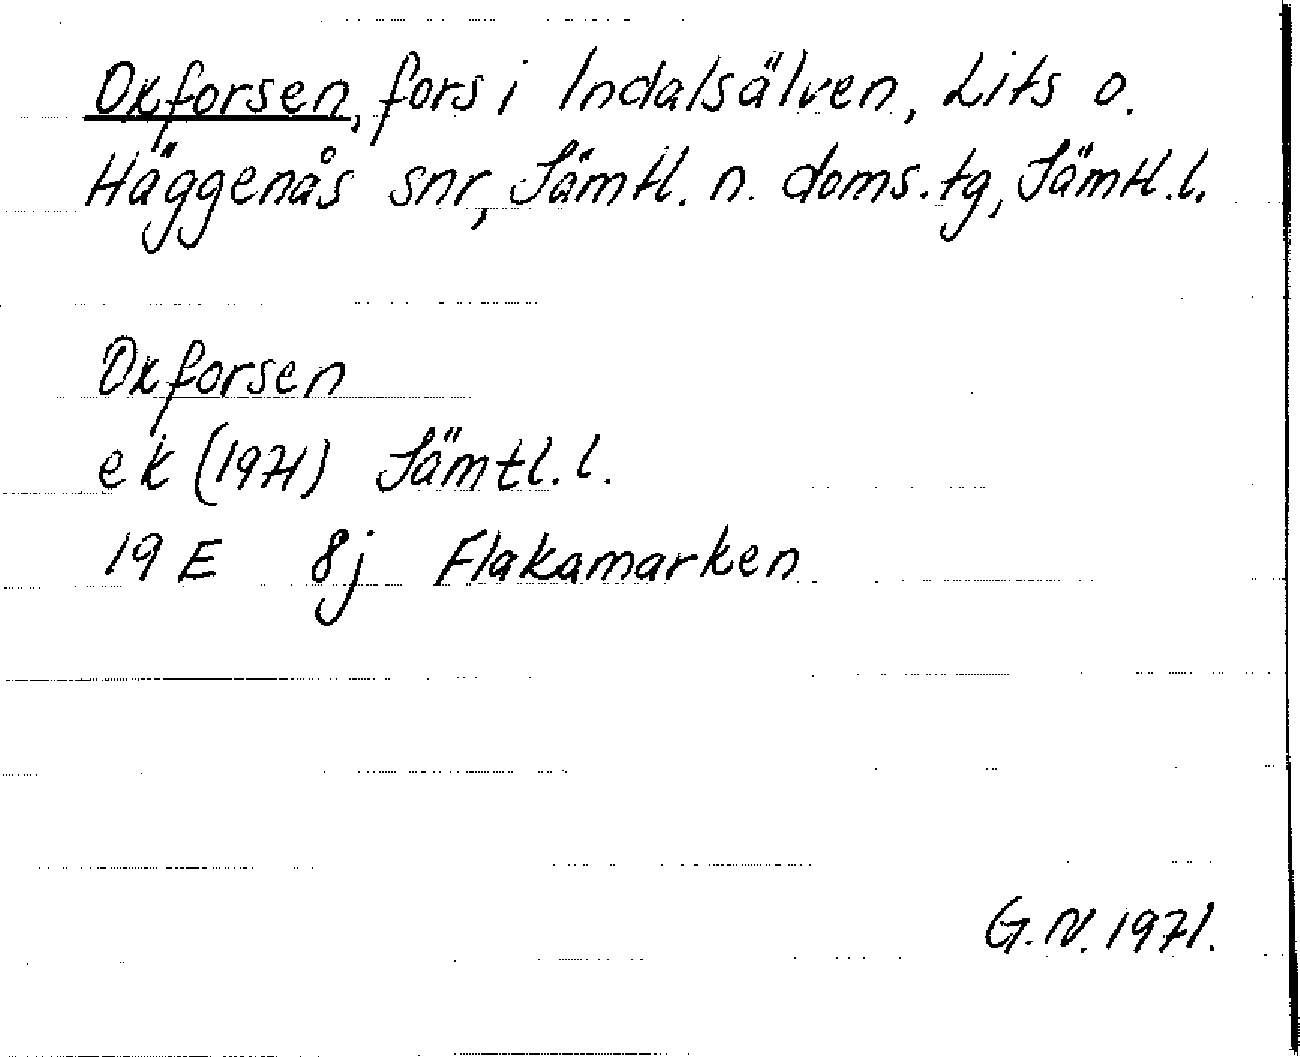 Oxforsen, fors i Indalsälven, Lits o.
Häggenås snr, Jämtl. n. doms. tg, Jämtl. l.
Oxforsen
ek (1971) Jämtl. l.
19 E 8j Flakamarken
G. N. 1971.